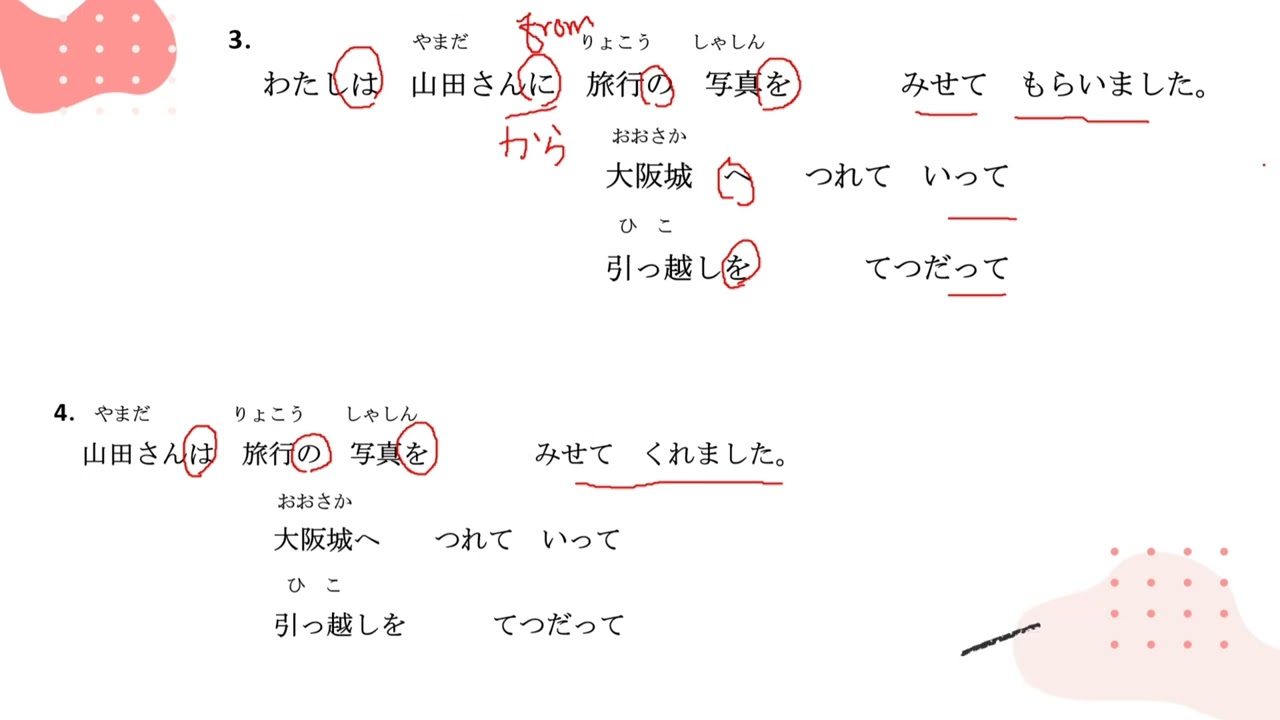 from
3.
やまだ りょこう しゃしん
わたしは 山田さんに 旅行の 写真を みせて もらいました。
から
おおさか
大阪城 へ つれて いって
ひ こ
引っ越しを てつだって
4. やまだ りょこう しゃしん
山田さんは 旅行の 写真を みせて くれました。
おおさか
大阪城へ つれて いって
ひ こ
引っ越しを てつだって